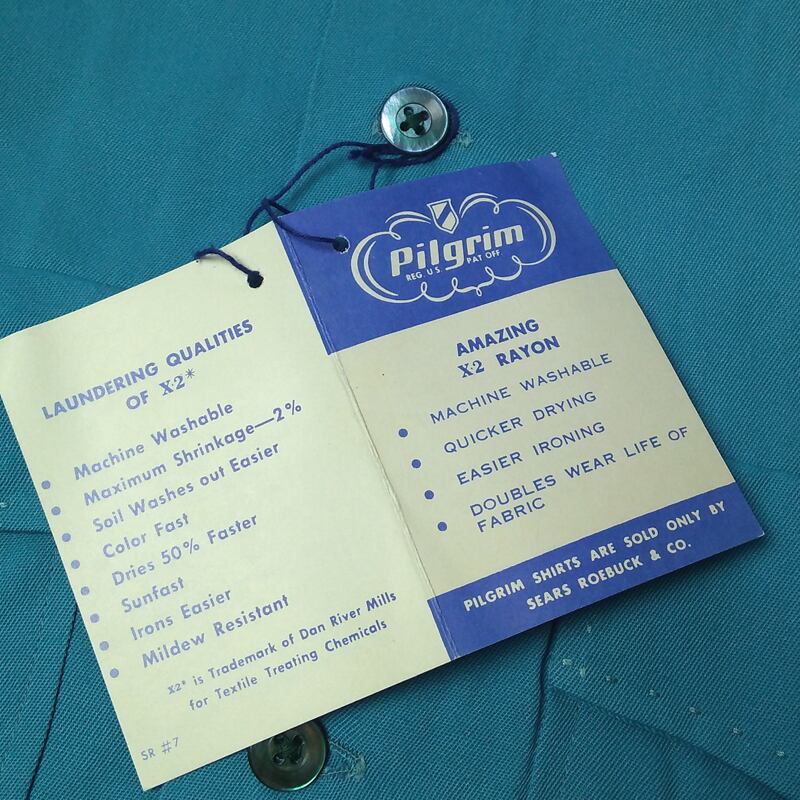 LAUNDERING QUALITIES
OF X-2*
• Machine Washable
• Maximum Shrinkage—2%
• Soil Washes out Easier
• Color Fast
• Dries 50% Faster
• Sunfast
• Irons Easier
• Mildew Resistant
X2* is Trademark of Dan River Mills
for Textile Treating Chemicals
SR #7
Pilgrim
REG. U.S. PAT OFF.
AMAZING
X-2 RAYON
• MACHINE WASHABLE
• QUICKER DRYING
• EASIER IRONING
• DOUBLES WEAR LIFE OF
FABRIC
PILGRIM SHIRTS ARE SOLD ONLY BY
SEARS ROEBUCK & CO.